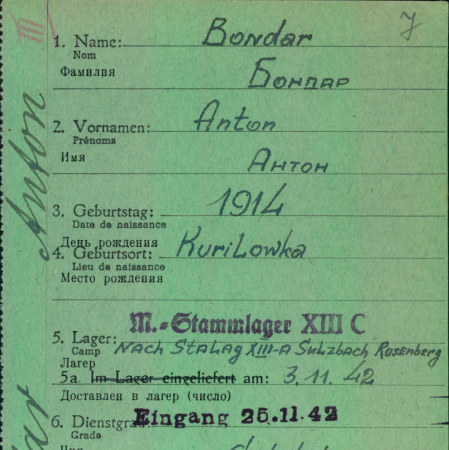 III
7
1. Name: Bondar
Nom
Фамилия Бондар
2. Vornamen: Anton
Prénoms
Имя Антон
3. Geburtstag: 1914
Date de naissance
День рождения
4. Geburtsort: KuriLowka
Lieu de naissance
Место рождения
M.=Stammlager XIII C
5. Lager: NACH StaLag XIII-A SuLzbach Rosenberg
Camp
Лагер
5a. Im Lager eingeliefert am: 3. 11. 42
Доставлен в лагер (число)
Eingang 25.11.42
6. Dienstgrad:
Grade
Anton